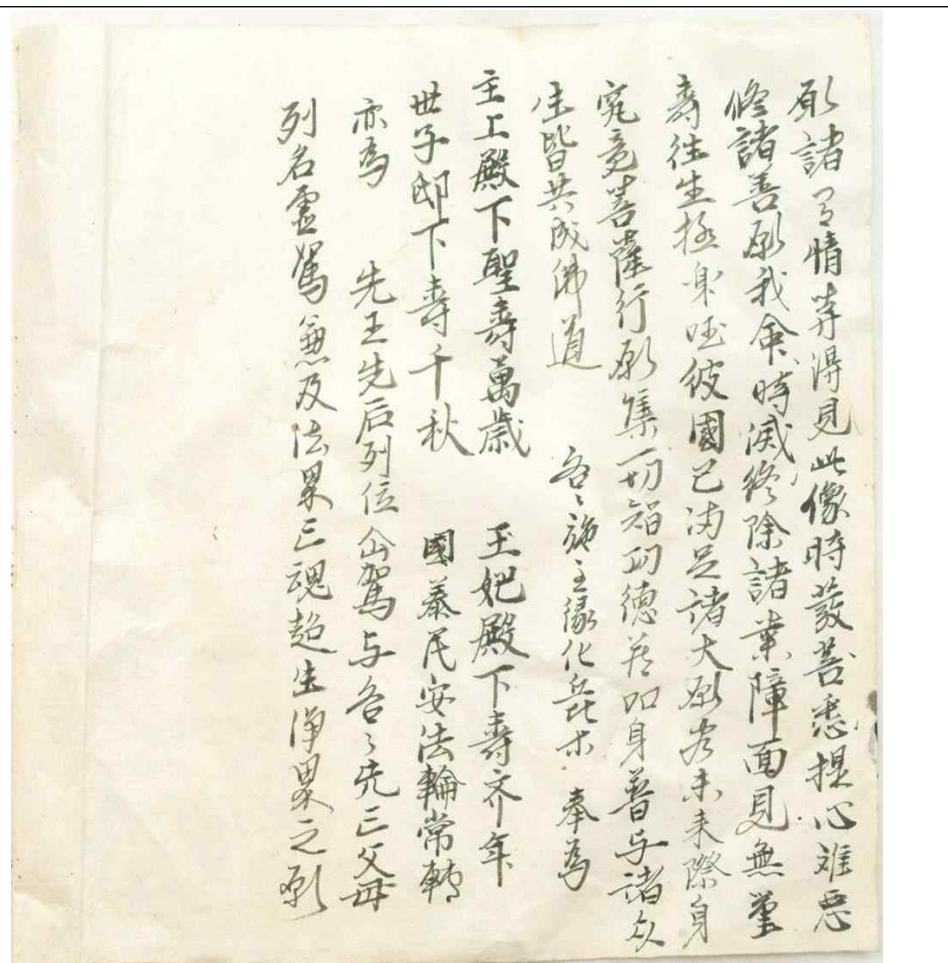 願諸有情等得見此像時發菩悉提心难惡
修諸善願我命時滅終除諸業障面見無量
壽往生極樂哇彼國已満足諸大願尽未来際身
究竟菩薩行願集一切智功徳若如身普与諸众
生皆共成佛道 各〻施主緣化丘木 奉為
主上殿下聖壽萬歲 王妃殿下壽齐年
世子邸下壽千秋 國泰民安法輪常轉
亦為 先王先后列位仚駕与各〻先亡父母
列名霊駕兼及法界亡魂超生浄界之願